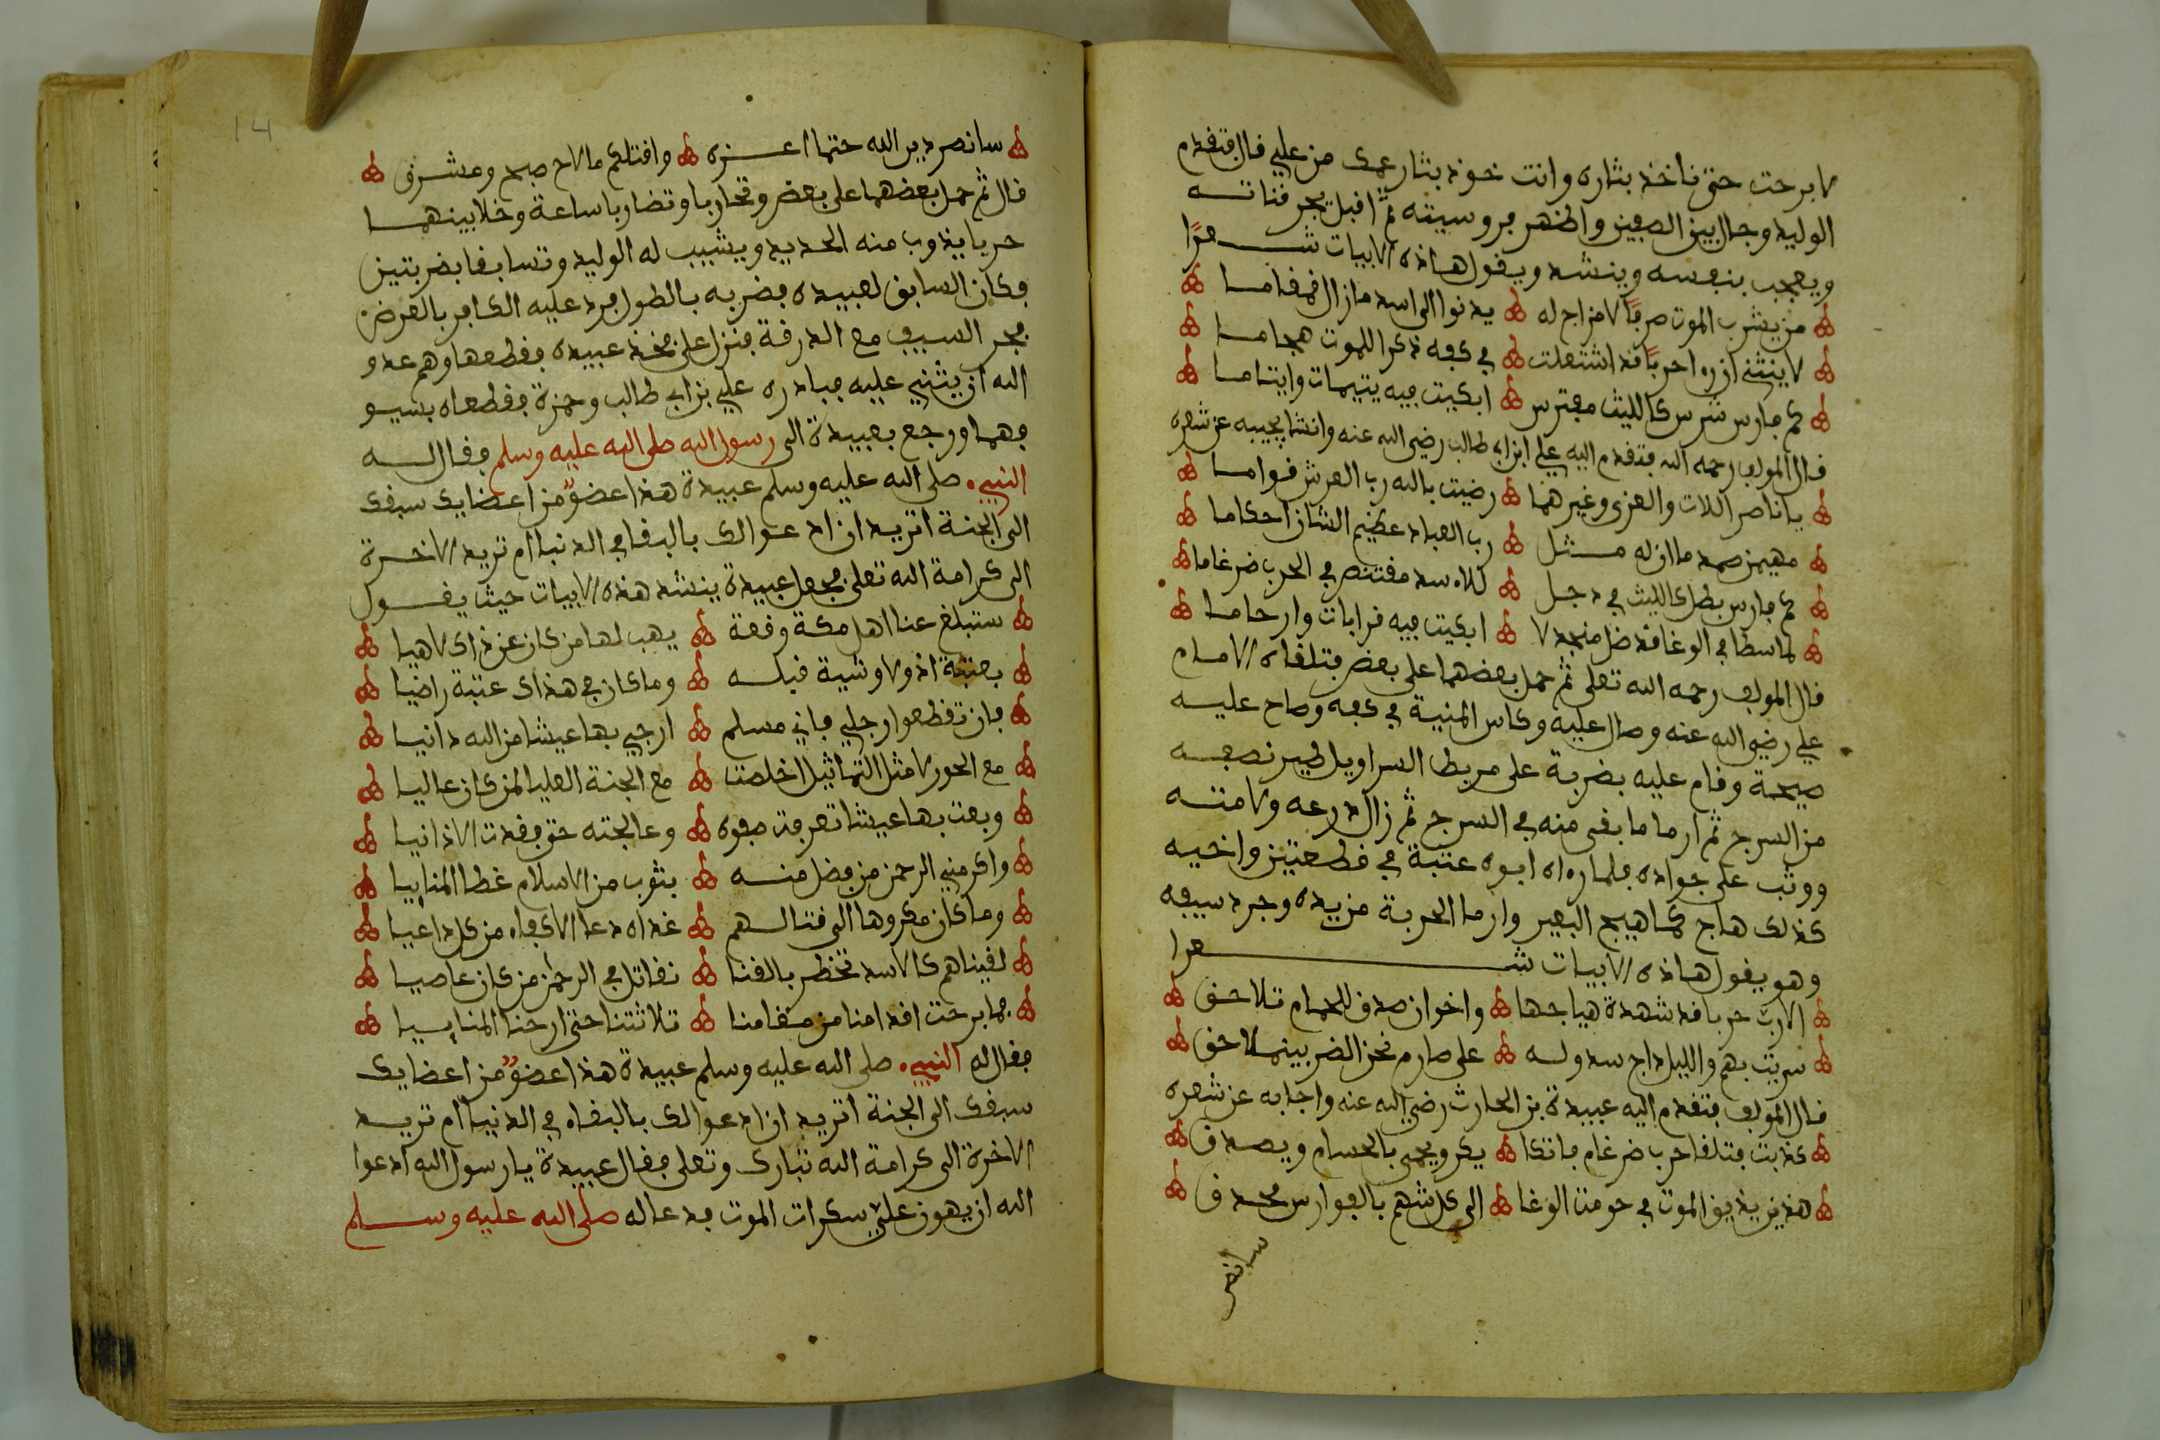 لا برحت حتى ناخذ بثاره وانت خوذ بثار عمك من علي قال فتقدم
الوليد وجال بين الصفين واظهر فروسيته ثم اقبل يجر قناتــه
ويعجب بنفسه وينشد ويقول هاذه الابيات شــعرًا
من يشرب الموت صرفًا لا مزاج له يدنوا الى اسد مازال قمقامــا
لا ينثنى ان را حربًا قد اشتعلت في كفه ذكرا للموت هجامــا
كم فارس شرس كالليث مفترس ابكيت فيه يتيمات وايتامــا
قال المولف رحمه الله فتقدم اليه علي ابن ابي طالب رضي الله عنه وانشا يجيبه عن شعره
يا ناصر اللات والعزى وغيرهما رضيت بالله رب العرش قوامــا
مهيمن صمد ما ان له مــثل رب العباد عظيم الشان احكاما
كم فارس بطل كالليث في دجل كلاسد مقتنص في الحرب ضرغاما
لما سطا في الوغا قد ضل منجدلا ابكيت فيه قرابات وارحامــا
قال المولف رحمه الله تعلى ثم حمل بعضهما على بعض فتلقاه الامــام
علي رضي الله عنه وصال عليه وكاس المنية في كفه وصاح عليــه
صيحة وقام عليه بضربة على مربط السراويل طير نصفــه
من السرج ثم ارما ما بقى منه في السرج ثم زال درعه ولامتــه
ووثب على جواده فلما راه ابوه عتبة في قطعتين واخيه
كذلك هاج كما هيج البعير وارما الحربة من يده وجرد سيفه
وهو يقول هاذه الابيات شــعرا
الا رب حربا قد شهدة هياجها واخوان صدق للحمام تلاحق
سريت بهم والليل داج سدولــه على صارم نحن الضربينهــا لاحق
قال المولف فتقدم اليه عبيدة بن الحارث رضي الله عنه واجابه عن شعره
كذبت فتلقا حرب ضرغام فاتكا يكر ويحمى بالحسام ويصدق
هذبن يذيق الموت في حومت الوغا الى كل شهم بالفوارس محدق
سانصر
14
سانصر دين الله حتما اعــزه واقتلكم مالاح صبح ومشرق
قال ثم حمل بعضهما على بعض وتحاربا وتضاربا ساعة وخلا بينهمــا
حربا يذوب منه الحديد ويشيب له الوليد وتسابقا بضربتين
فكان السابق لعبيده فضربه بالطول فرد عليه الكافر بالعرض
فجر السيف مع الدرقة فنزل على فخذ عبيدة فقطعها وهم عدو
الله ان يثني عليه فبادره علي بن ابي طالب وحمزة فقطعاه بسيو
فهما ورجع بعبيدة الى رسول الله صلى الله عليه وسلم فقال لــه
النبي صلى الله عليه وسلم عبيدة هذا عضوٌ من اعضايك سبقك
الى الجنة اتريد ان ادعوا لك بالبقا في الدنيا ام تريد الاخــرة
الى كرامة الله تعلى فجعل عبيدة ينشد هذه الابيات حيث يقــول
ستبلغ عنا اهل مكة وقعة يهب لها من كان عن ذاك لاهيا
بعتبة اذ ولا وشيبة قبلــه وما كان في هذاك عتبة راضيا
فان تقطعوا رجلي فاني مسلم ارجي بها عيشا من الله دانيــا
مع الحور لامثل التماثيل اخلصت مع الجنة العليا لمن كان عاليــا
وبعت بها عيشا تعرفت صفوه وعالجته حتى فقدت الادانيــا
واكرمني الرحمن من فضل منــه بثوب من الاسلام غطا المناييا
وما كان مكروها الى قتالــهم غداه دعا الاكفاء من كل داعيا
لقيناهم كالاسد تخطر بالقنا نقاتل في الرحمن من كان عاصيــا
فما برحت اقدامنا من مقامنا ثلاثتنا حتى ارحنا المنايــيا
فقال له النبي صلى الله عليه وسلم عبيدة هذا عضوٌ من اعضايك
سبقك الى الجنة اتريد ان ادعوا لك بالبقاء في الدنيا ام تريــد
الاخرة الى كرامة الله تبارك وتعلى فقال عبيدة يا رسول الله ادعوا
الله ان يهون علي سكرات الموت فدعا له صلى الله عليه وســلم